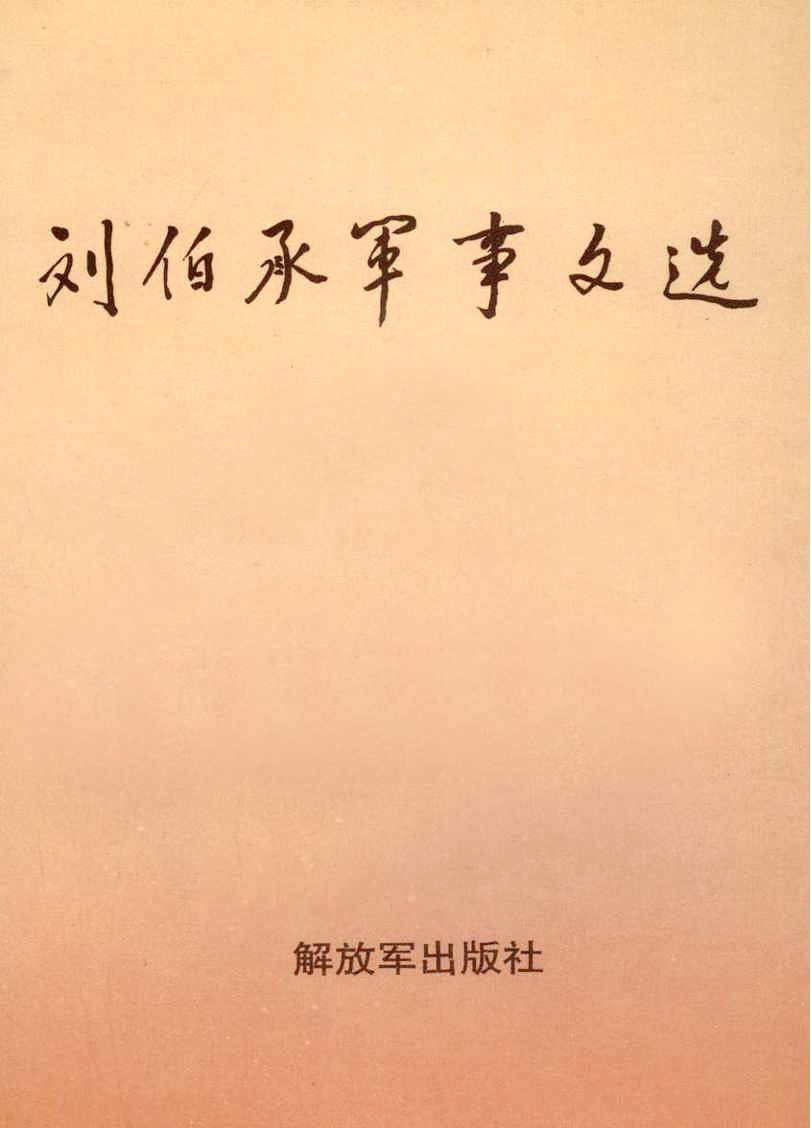 刘伯承军事文选
解放军出版社